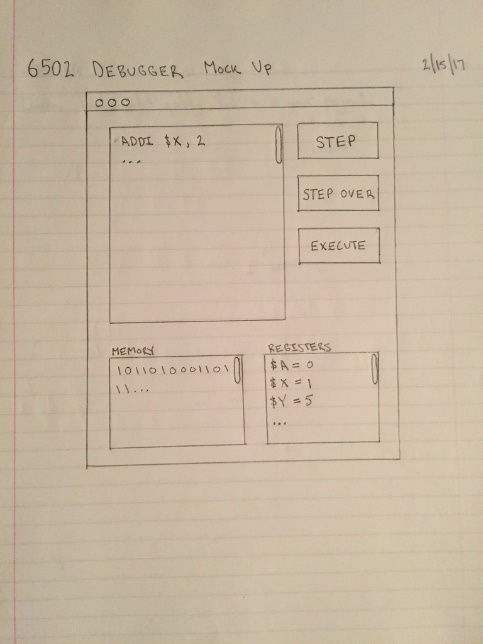 6502 DEBUGGER MOCK UP
2/15/17
ADDI $X, 2
...
STEP
STEP OVER
EXECUTE
MEMORY
1011010001101
11...
REGISTERS
$A = 0
$X = 1
$Y = 5
...